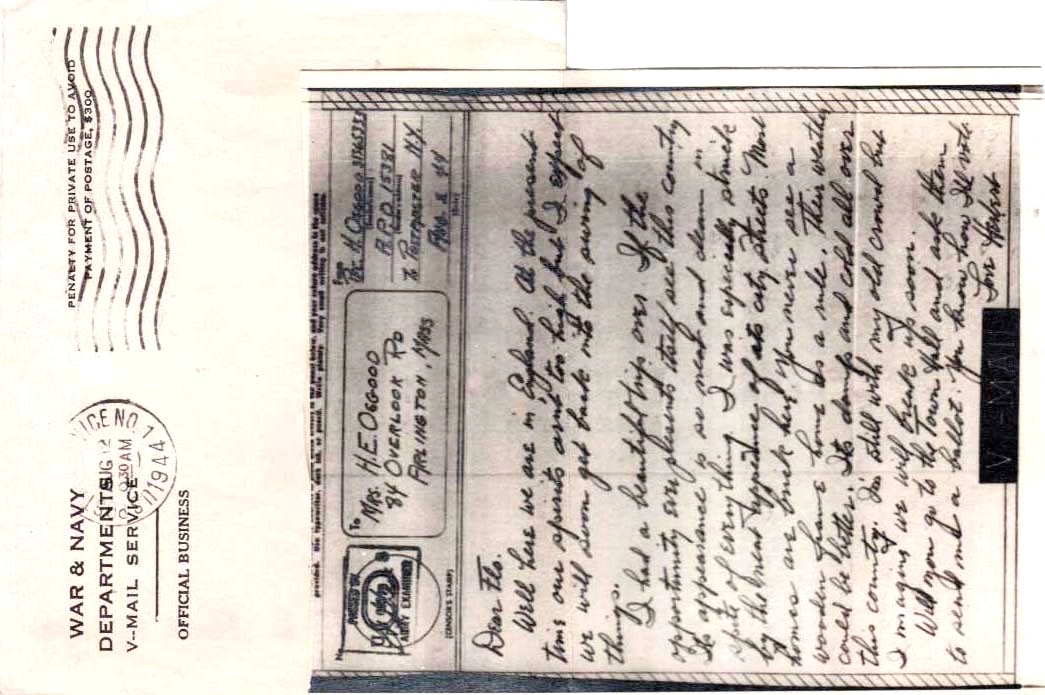 WAR & NAVY
DEPARTMENTS
V-MAIL SERVICE
OFFICIAL BUSINESS
PENALTY FOR PRIVATE USE TO AVOID
PAYMENT OF POSTAGE, $300
ICE NO. 1
AUG 12
30 AM
1944
provided. Use typewriter, dark ink, or pencil. Write plainly. Very small writing is not suitable.
No.
PASSED BY
ARMY EXAMINER
(CENSOR'S STAMP)
To
MRS. H.E. OSGOOD
84 OVERLOOK RD
ARLINGTON, MASS
From
H. OSGOOD
A.P.O. 15381
℅ POSTMASTER N.Y.
AUG. 2 44
(Date)
Dear Flo.
Well here we are in England. At the present
time our spirits arnt too high but I expect
we will soon get back into the swing of
things.
I had a beautiful trip over. If the
opportunity ever presents itself see this country
Its appearance is so neat and clean in
spite of everything. I was especially struck
by the broad appearance of its city streets. Most
homes are brick here, you never see a
wooden frame home as a rule. Their weather
could be better. Its damp and cold all over
this country. I'm still with my old crowd but
I imagine we will break up soon.
Will you go to the Town Hall and ask them
to send me a ballot. You know how I'll vote.
Love
V-MAIL